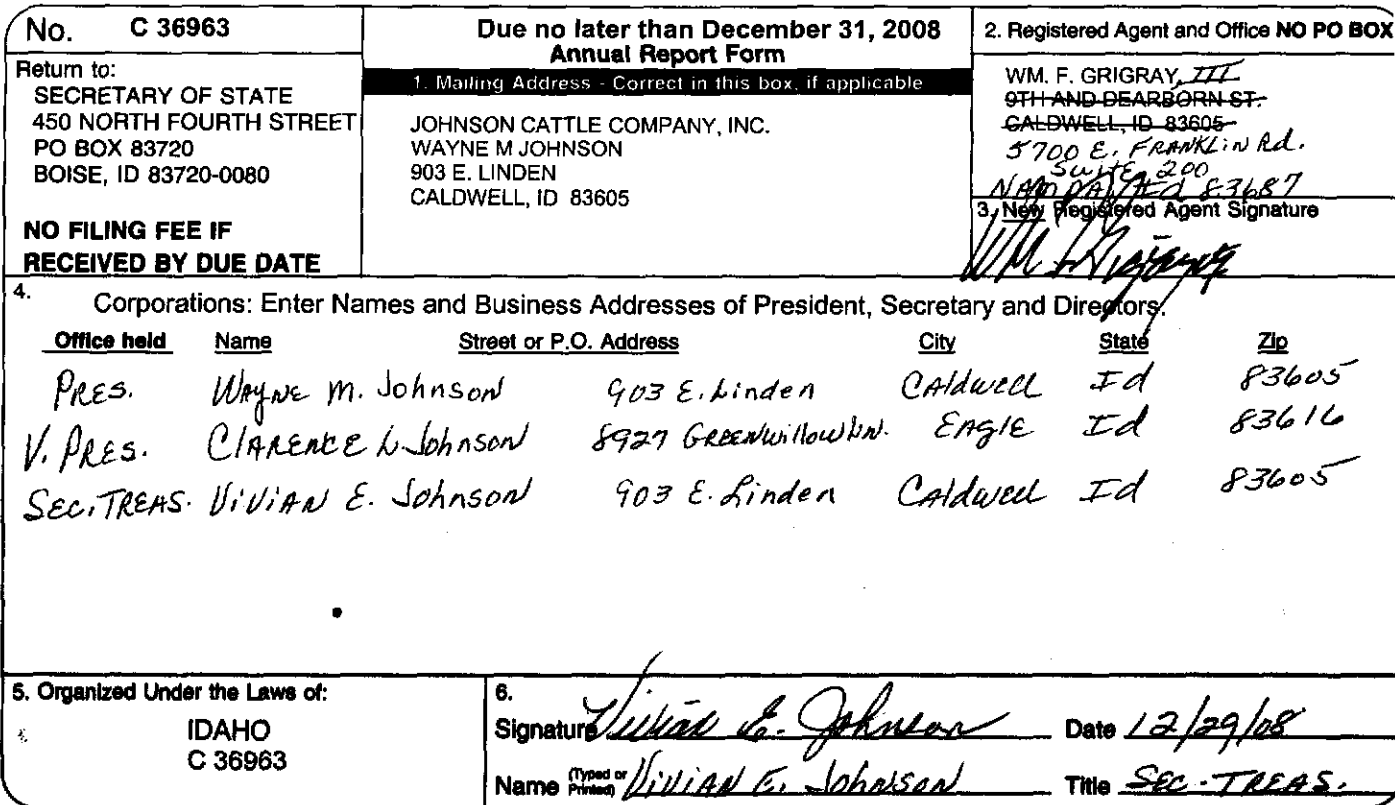 No. C 36963
Return to:
SECRETARY OF STATE
450 NORTH FOURTH STREET
PO BOX 83720
BOISE, ID 83720-0080
NO FILING FEE IF
RECEIVED BY DUE DATE
Due no later than December 31, 2008
Annual Report Form
1. Mailing Address - Correct in this box, if applicable
JOHNSON CATTLE COMPANY, INC.
WAYNE M JOHNSON
903 E. LINDEN
CALDWELL, ID 83605
2. Registered Agent and Office NO PO BOX
WM. F. GRIGRAY, III
9TH AND DEARBORN ST.
CALDWELL, ID 83605
5700 E. FRANKLIN Rd.
Suite 200
NAMPA, Id 83687
3. New Registered Agent Signature
4. Corporations: Enter Names and Business Addresses of President, Secretary and Directors.
Office held Name Street or P.O. Address City State Zip
PRES. WAYNE M. Johnson 903 E. Linden CAldwell Id 83605
V. PRES. ClARENCE L. Johnson 8927 GREENWillow LN. EAglE Id 83616
SEC. TREAS. ViViAN E. Johnson 903 E. Linden CAldwell Id 83605
5. Organized Under the Laws of:
IDAHO
C 36963
6.
Signature Vivian E. Johnson Date 12/29/08
Name (Typed or Printed) ViViAN E. Johnson Title SEC.-TREAS.